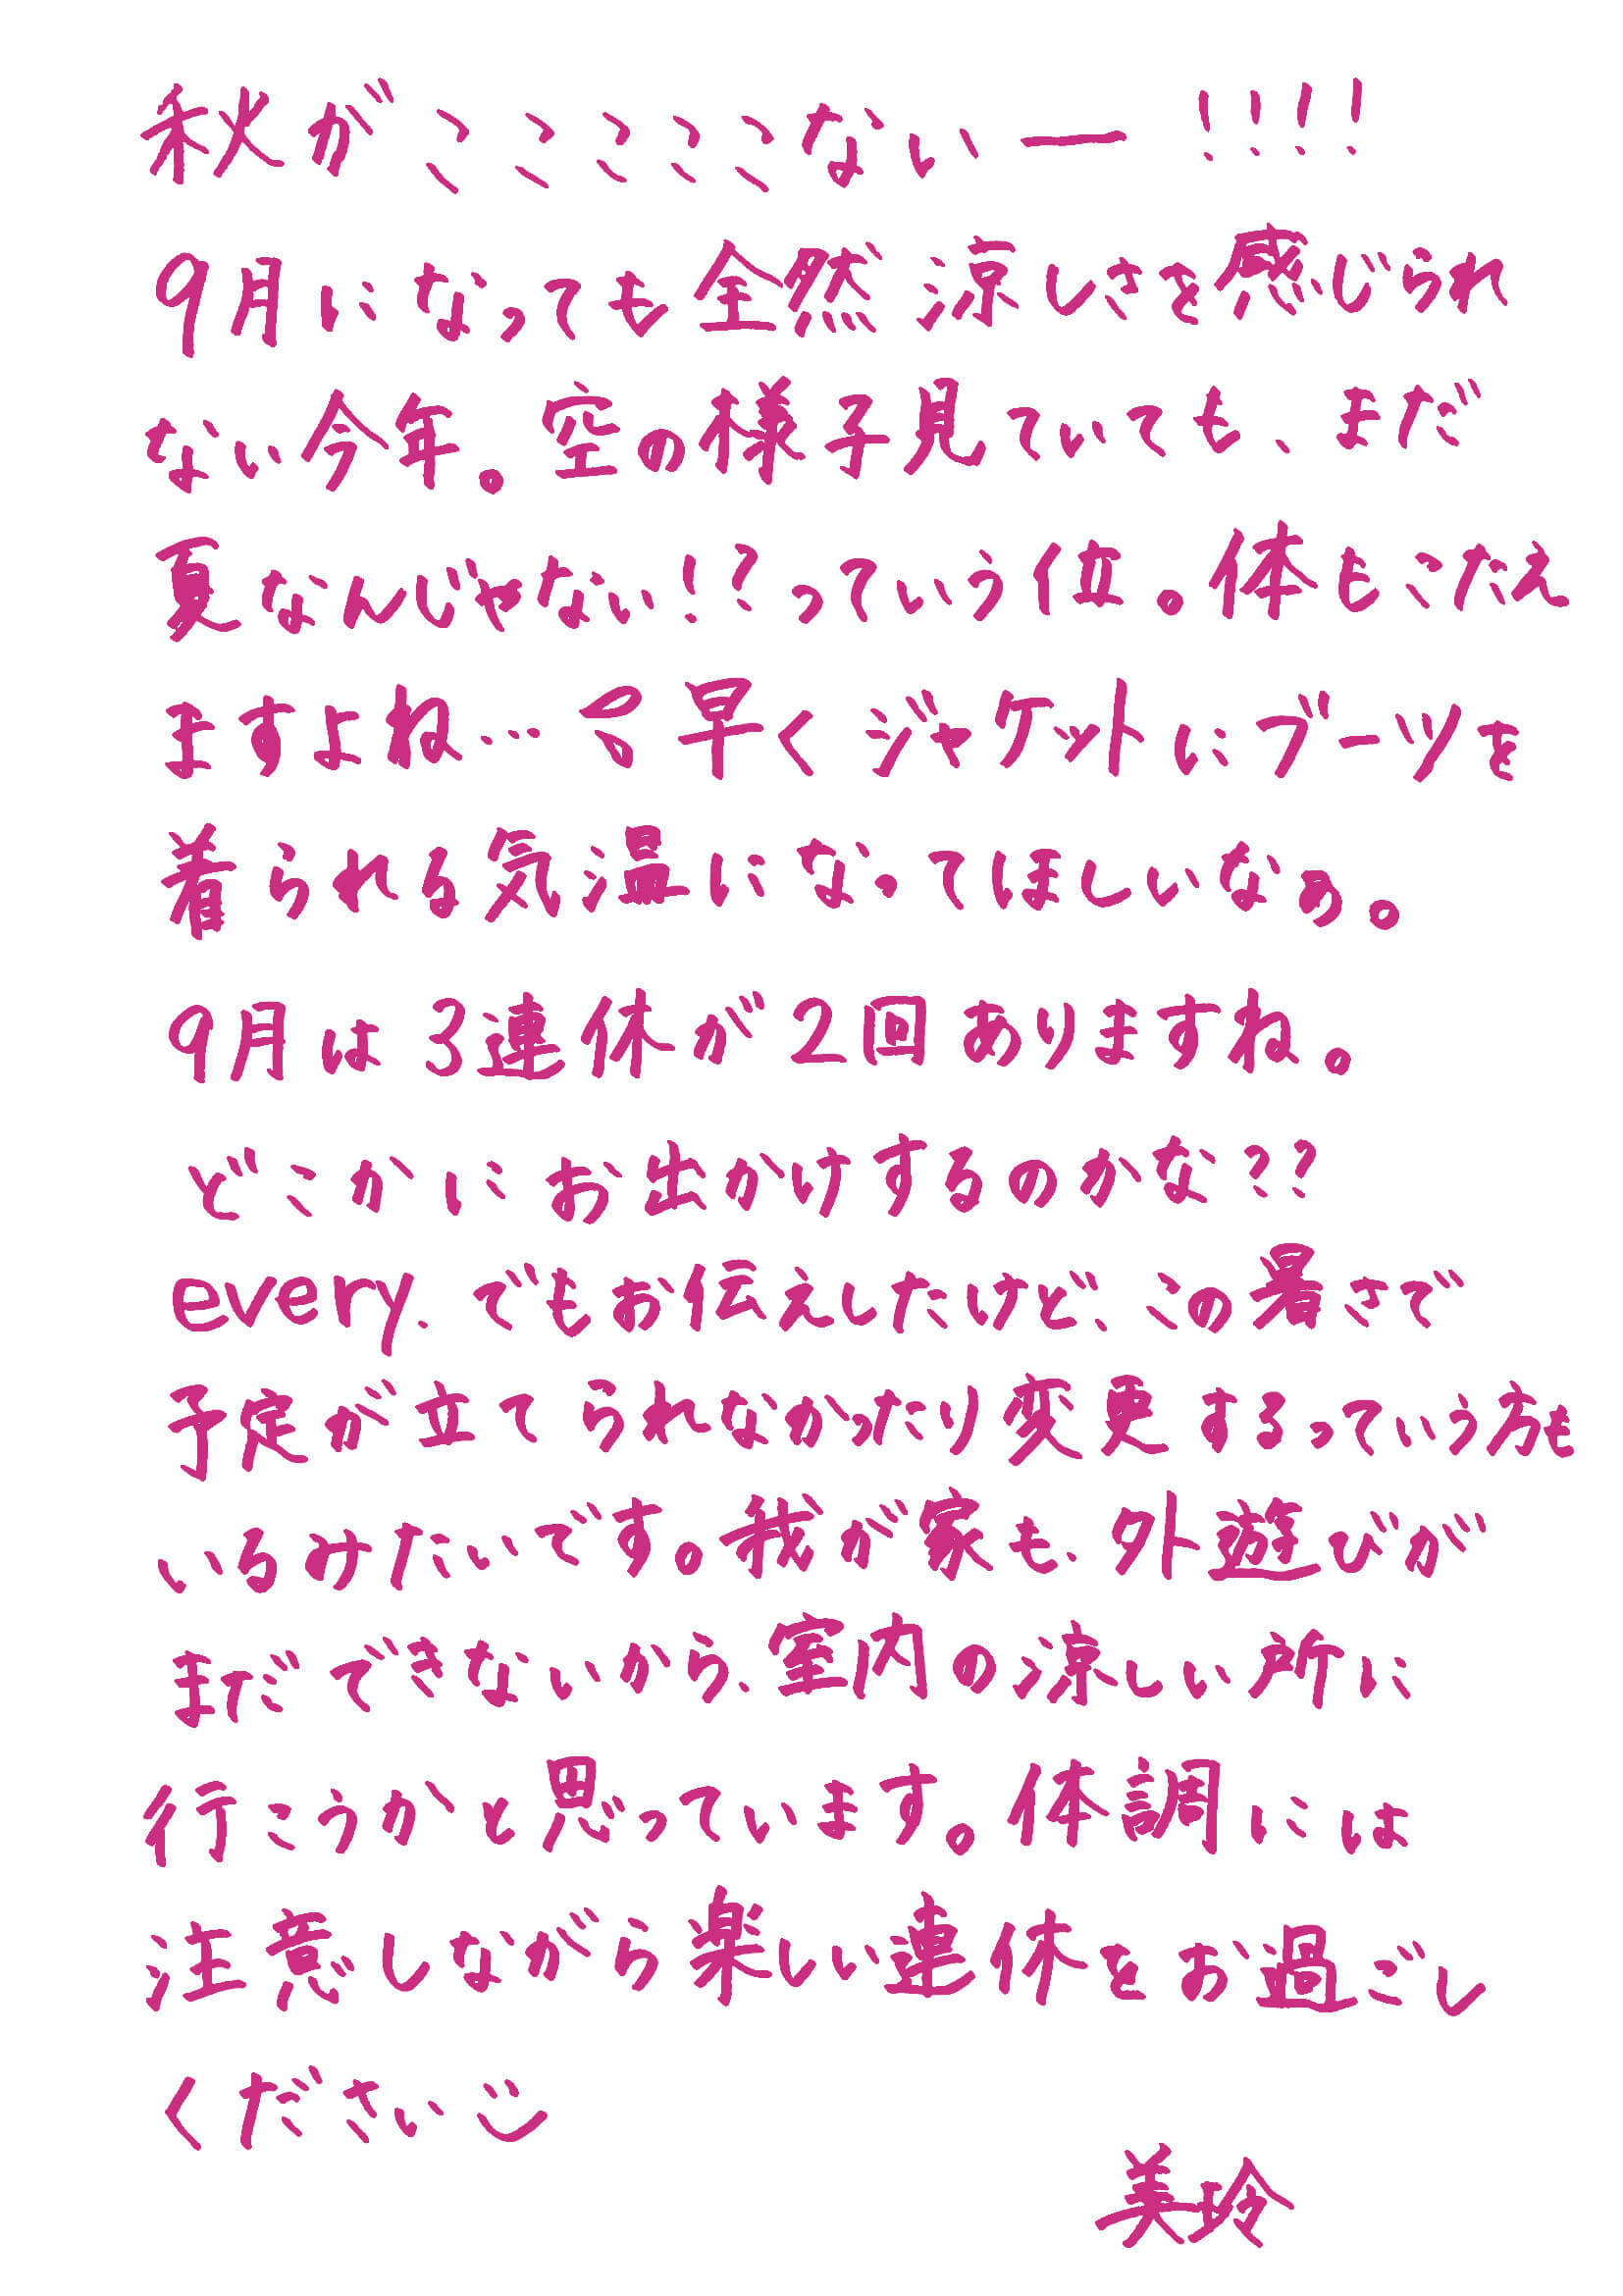 秋がこここここないー!!!!
9月になっても全然涼しさを感じられ
ない今年。空の様子見ていても、まだ
夏なんじゃない!?っていう位。体もこたえ
ますよね…早くジャケットにブーツを
着られる気温になってほしいなぁ。
9月は3連休が2回ありますね。
どこかにお出かけするのかな??
every.でもお伝えしたけど、この暑さで
予定が立てられなかったり変更するっていう方も
いるみたいです。我が家も、外遊びが
まだできないから、室内の涼しい所に
行こうかと思っています。体調には
注意しながら楽しい連休をお過ごし
ください
美玲